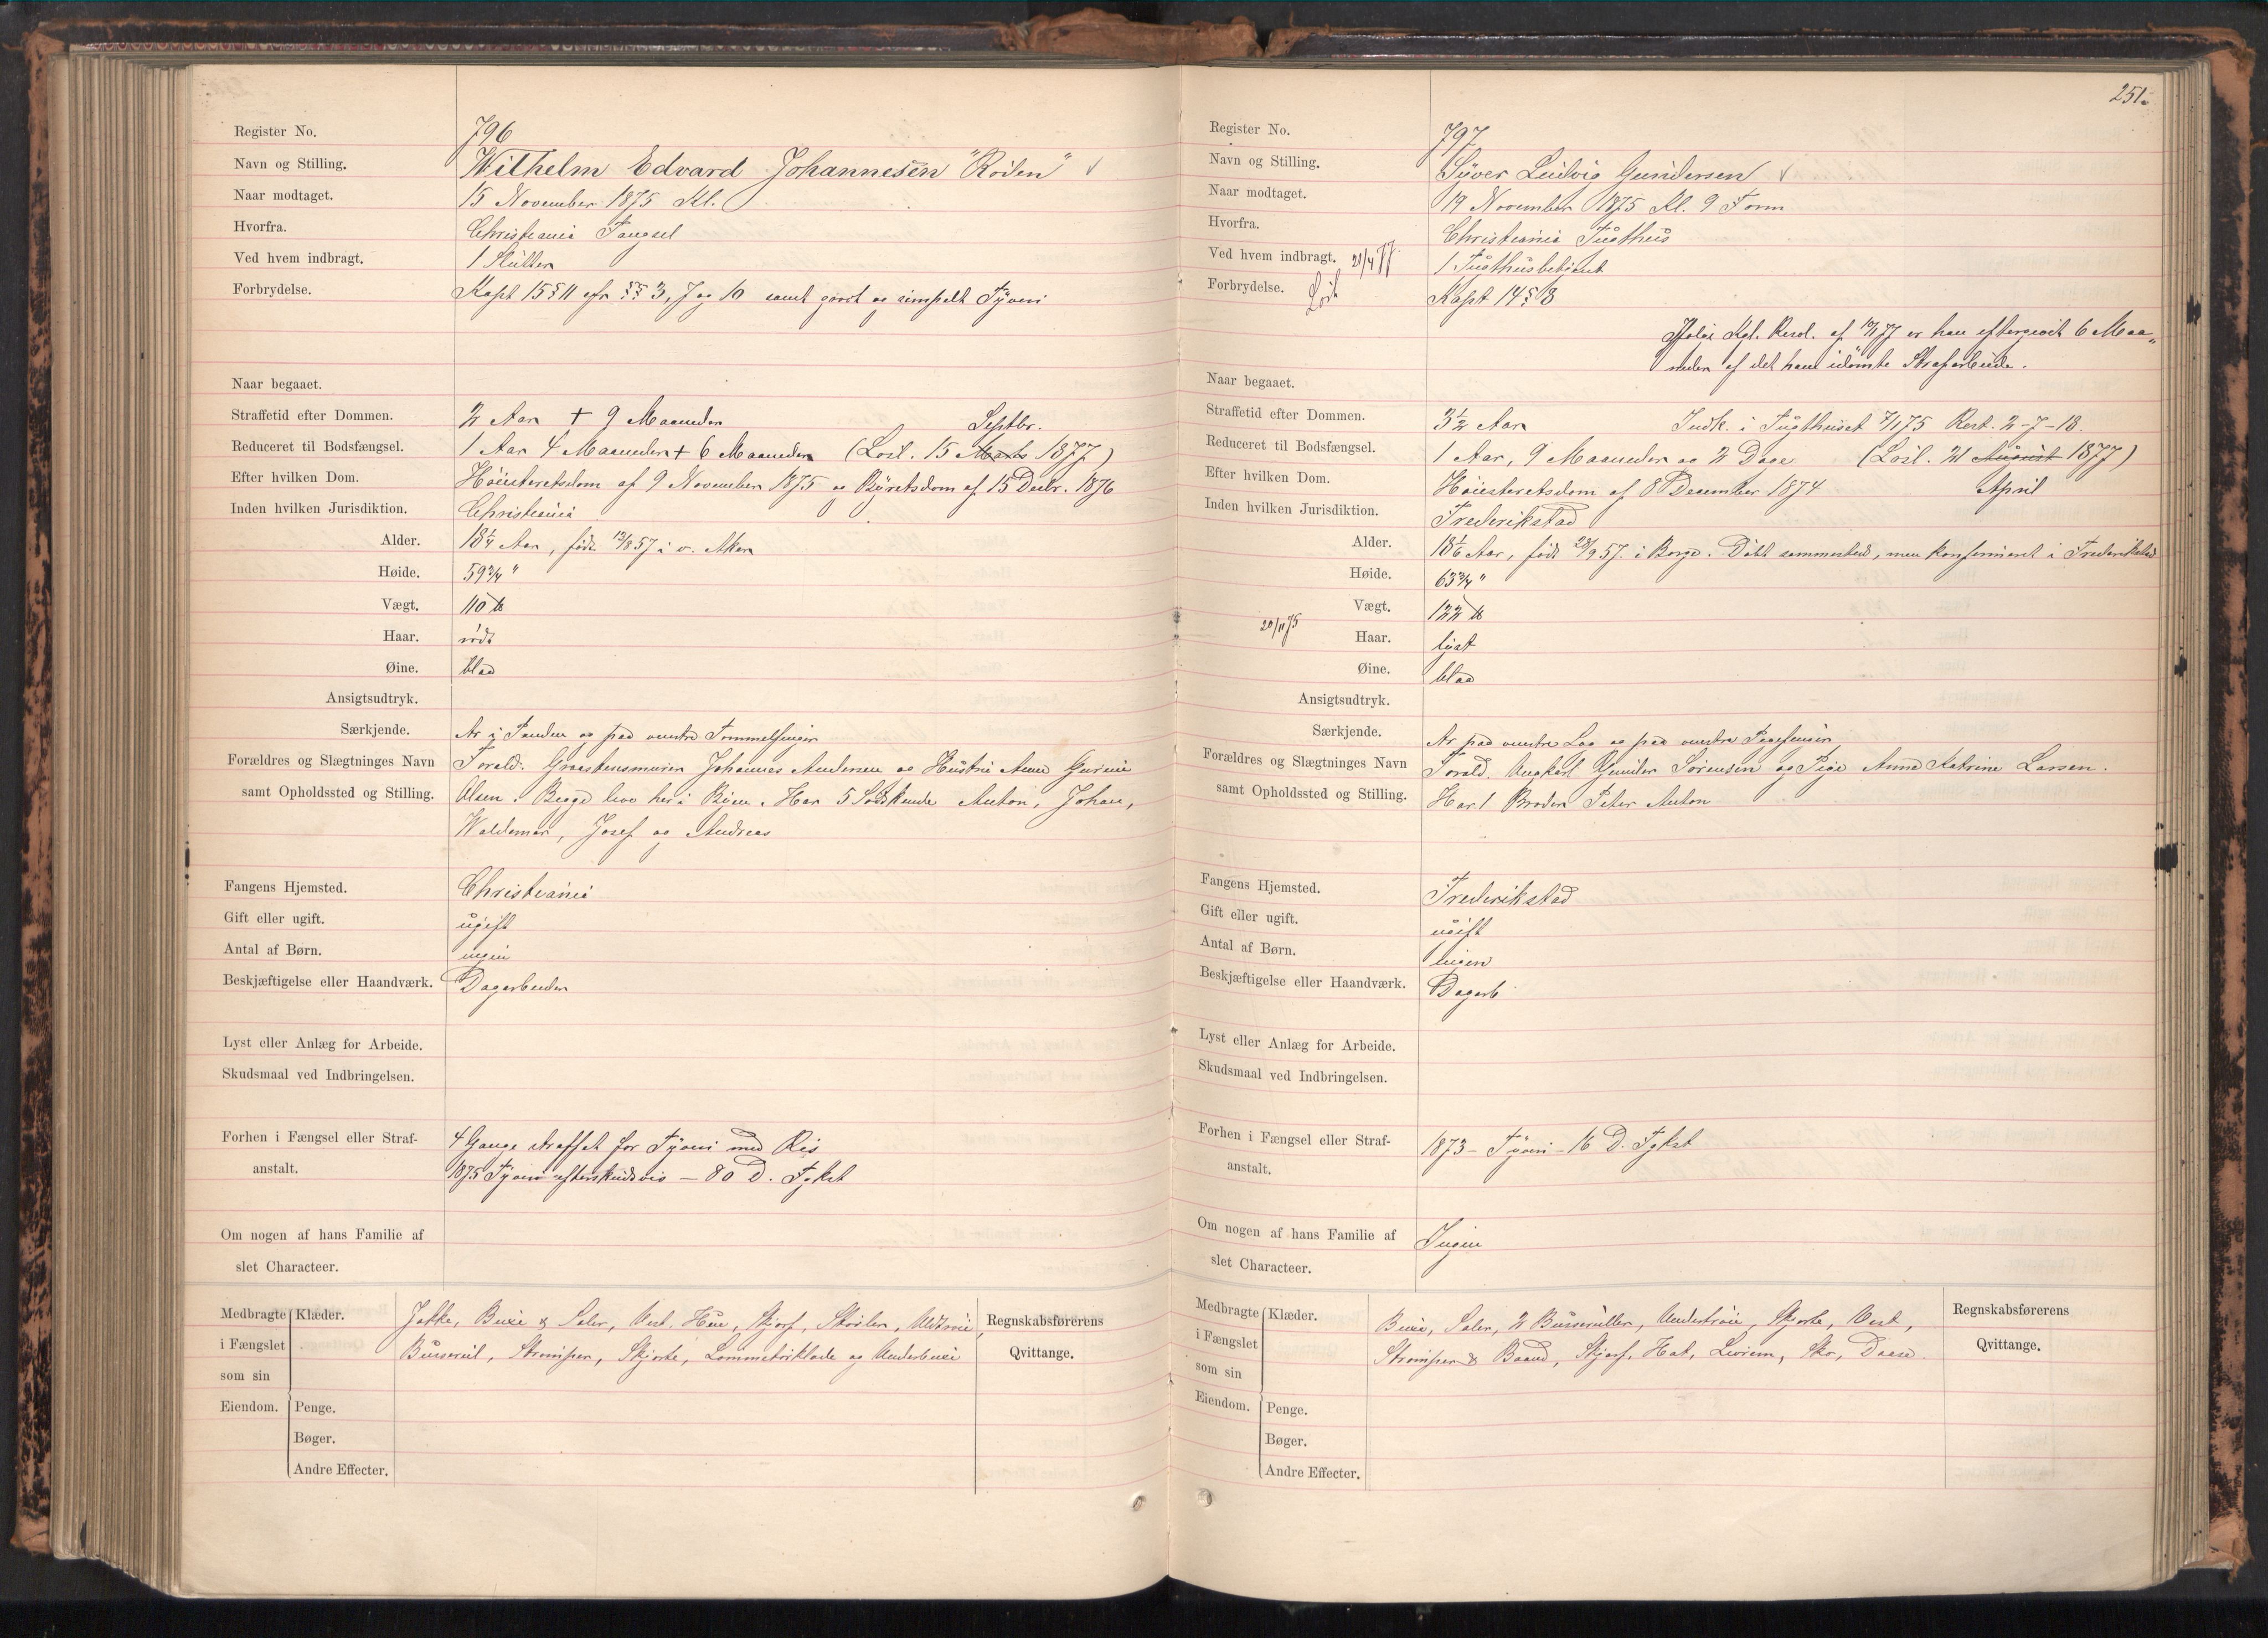 Register No. 796
Navn og Stilling. Wilhelm Edvard Johannesen "Roden"
Naar modtaget. 15 November 1875 Kl.
Hvorfra. Christiania Fængsel
Ved hvem indbragt. 1 Slutter
Forbrydelse. Kapt 15 § 11 cfr §§ 3, 7 og 10 samt grovt og simpelt Tyveri
Naar begaaet.
Straffetid efter Dommen. 2 Aar + 9 Maaneder Septbr.
Reduceret til Bodsfængsel. 1 Aar 4 Maaneder + 6 Maaneder (Løsl. 15 Marts 1877)
Efter hvilken Dom. Høiesteretsdom af 9 November 1875 og Byretsdom af 15 Decbr. 1876
Inden hvilken Jurisdiktion. Christiania
Alder. 18 1/4 Aar, født 13/8 57 i v. Aker
Høide. 59 3/4 "
Vægt. 110 ℔
Haar. rødt
Øine. blaa
Ansigtsudtryk.
Særkjende. Ar i Panden og paa venstre Tommelfinger
Forældres og Slægtninges Navn Foræld: Graastensmurer Johannes Andersen og Hustru Anne Gurine
samt Opholdssted og Stilling. Olsen. Begge leve her i Byen. Har 5 Sødskende Anton, Johan,
Waldemar, Josef og Andreas
Fangens Hjemsted. Christiania
Gift eller ugift. ugift
Antal af Børn. ingen
Beskjæftigelse eller Haandværk. Dagarbeider
Lyst eller Anlæg for Arbeide.
Skudsmaal ved Indbringelsen.
Forhen i Fængsel eller Straf- 4 Gange straffet for Tyveri med Ris
anstalt. 1875 Tyveri efterskudsvis – 80 D. Fgkst
Om nogen af hans Familie af
slet Characteer.
Medbragte Klæder. Jakke, Buxe & Seler, Vest, Hue, Skjærf, Støvler, Uldtrøie,
i Fængslet Busserul, Strømper, Skjorte, Lommetørklæde og Underbuxe
som sin
Eiendom. Penge.
Bøger.
Andre Effecter.
Regnskabsførerens
Qvittange.
251.
Register No. 797
Navn og Stilling. Syver Ludvig Gundersen
Naar modtaget. 19 November 1875 Kl. 9 Form
Hvorfra. Christiania Tugthus
Ved hvem indbragt. 21/4 77 1 Tugthusbetjent
Forbrydelse. Løst Kapt 14 § 8
Ifølge Kgl. Resol. af er han eftergivet 6 Maa-
neder af det ham idømte Strafarbeide.
Naar begaaet.
Straffetid efter Dommen. 3 1/2 Aar Indk. i Tugthuset 7/1 75 Rest. 2-7-18.
Reduceret til Bodsfængsel. 1 Aar, 9 Maaneder og 2 Dage (Løsl. 21 August 1877)
Efter hvilken Dom. Høiesteretsdom af 8 December 1874 April
Inden hvilken Jurisdiktion. Frederikstad
Alder. 18 1/6 Aar, født 28/9 57. i Borge. Døbt sammesteds, men konfirmeret i Frederikstad
Høide. 63 3/4 "
Vægt. 122 ℔
20/11 75
Haar. lyst
Øine. blaa
Ansigtsudtryk.
Særkjende. Ar paa venstre Laar og paa venstre Pegefinger
Forældres og Slægtninges Navn Foræld. Ungkarl Gunder Sørensen og Pige Anne Katrine Larsen.
samt Opholdssted og Stilling. Har 1 Broder Peter Anton
Fangens Hjemsted. Frederikstad
Gift eller ugift. ugift
Antal af Børn. ingen
Beskjæftigelse eller Haandværk. Dagarb
Lyst eller Anlæg for Arbeide.
Skudsmaal ved Indbringelsen.
Forhen i Fængsel eller Straf- 1873 – Tyveri – 16 D. Fgkst
anstalt.
Om nogen af hans Familie af Ingen
slet Characteer.
Medbragte Klæder. Buxe, Seler, 2 Busseruller, Undertrøie, Skjorte, Vest,
i Fængslet Strømper & Baand, Skjærf, Hat, Livrem, Sko, Daase.
som sin
Eiendom. Penge.
Bøger.
Andre Effecter.
Regnskabsførerens
Qvittange.